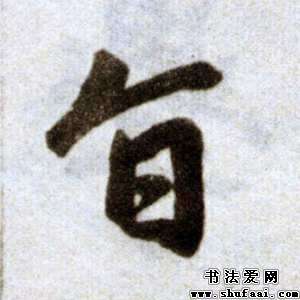 旨
书法爱网
www.shufaai.com